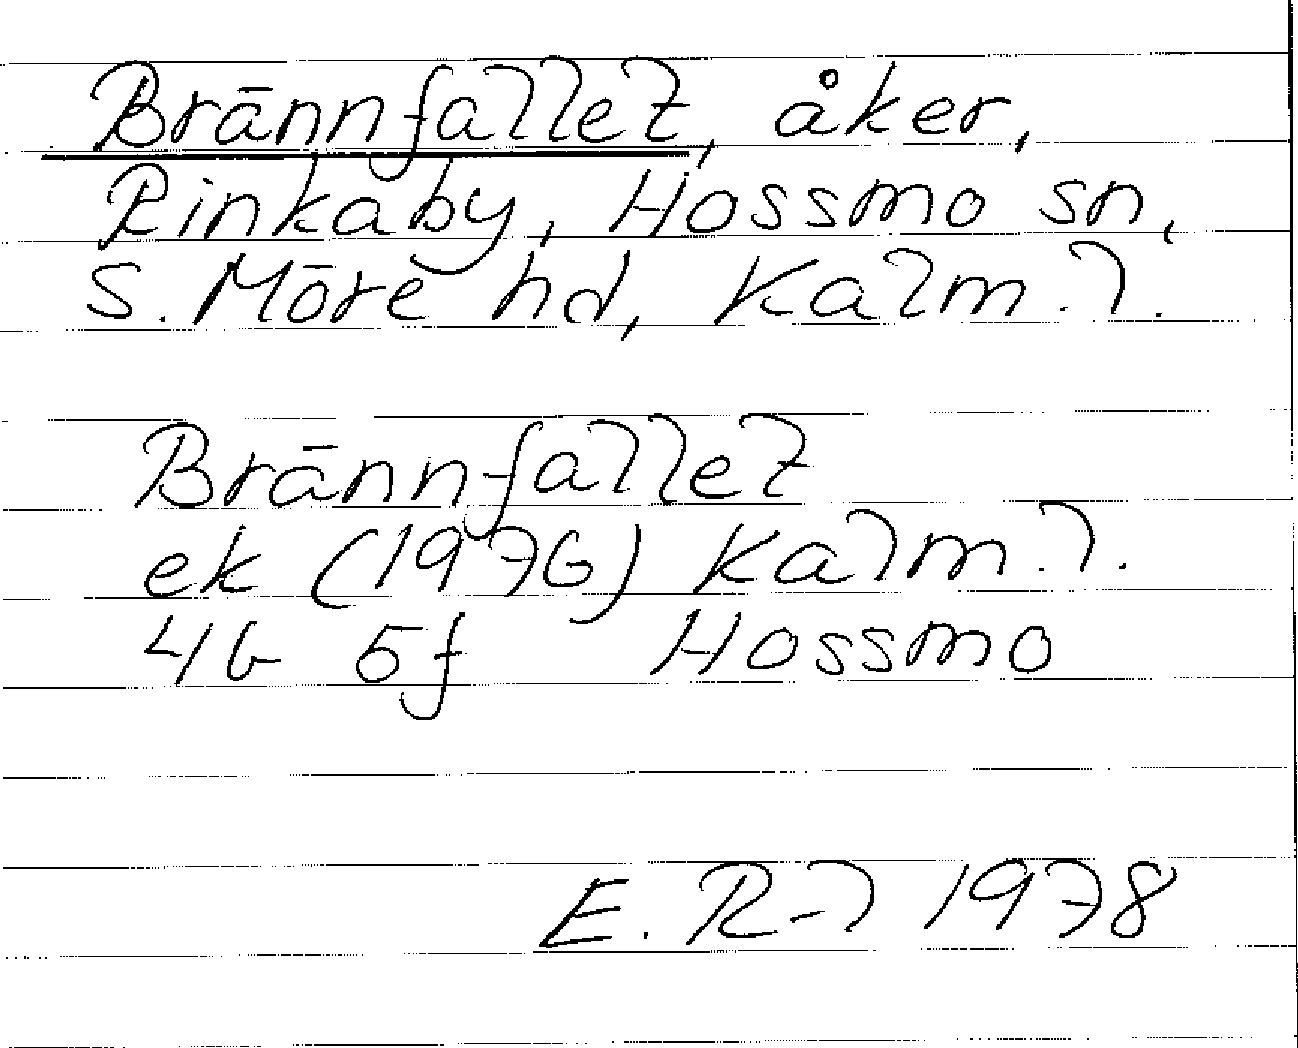 Brännfallet, åker,
Rinkaby, Hossmo sn,
S. Möre hd, Kalm. l.
Brännfallet
ek (1976) Kalm. l.
4G 5f Hossmo
E. R-l 1978